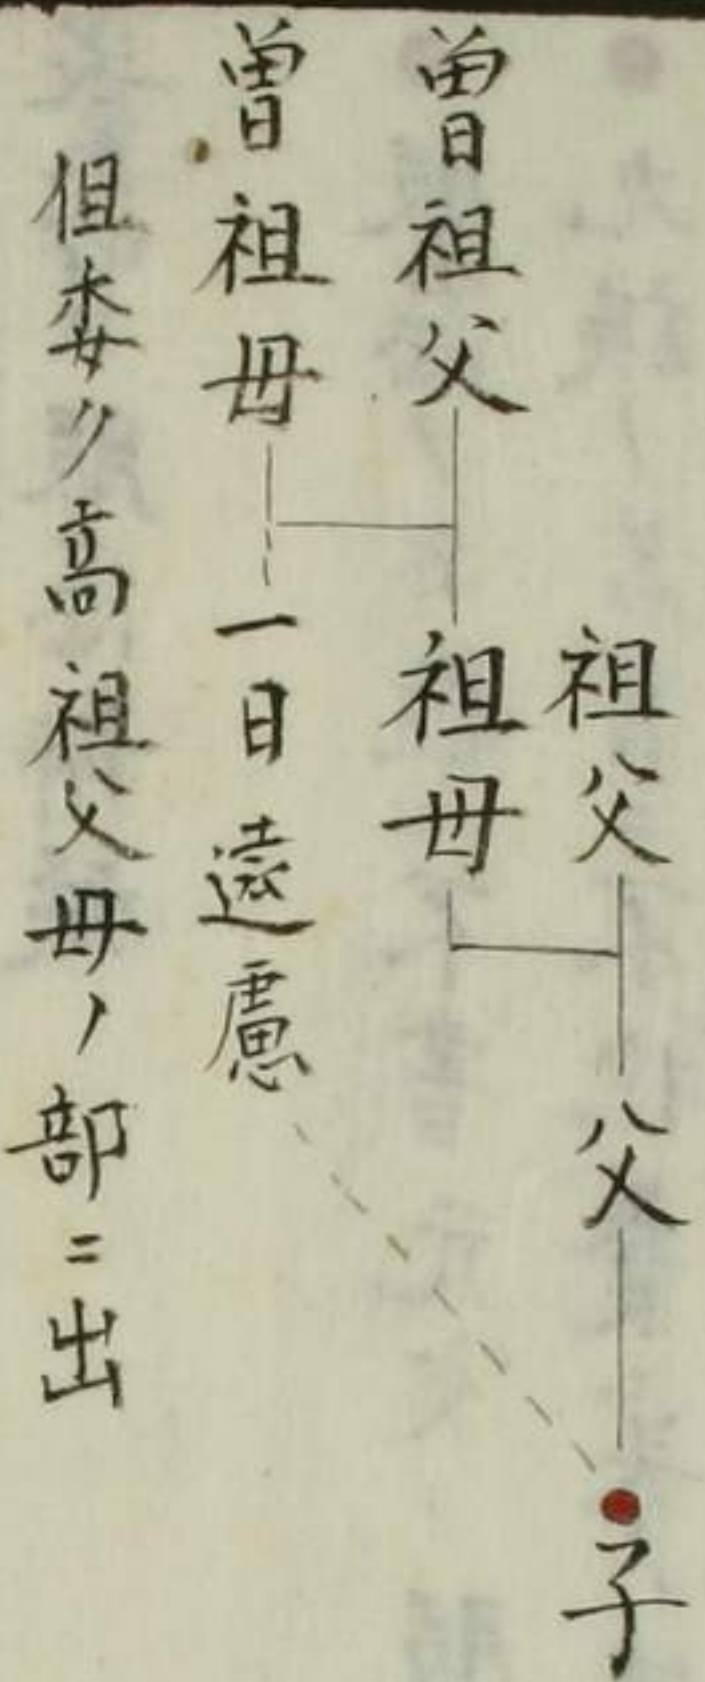 祖父 父 子
曽祖父 祖母
曽祖母 一日遠慮
但委ク高祖父母ノ部ニ出